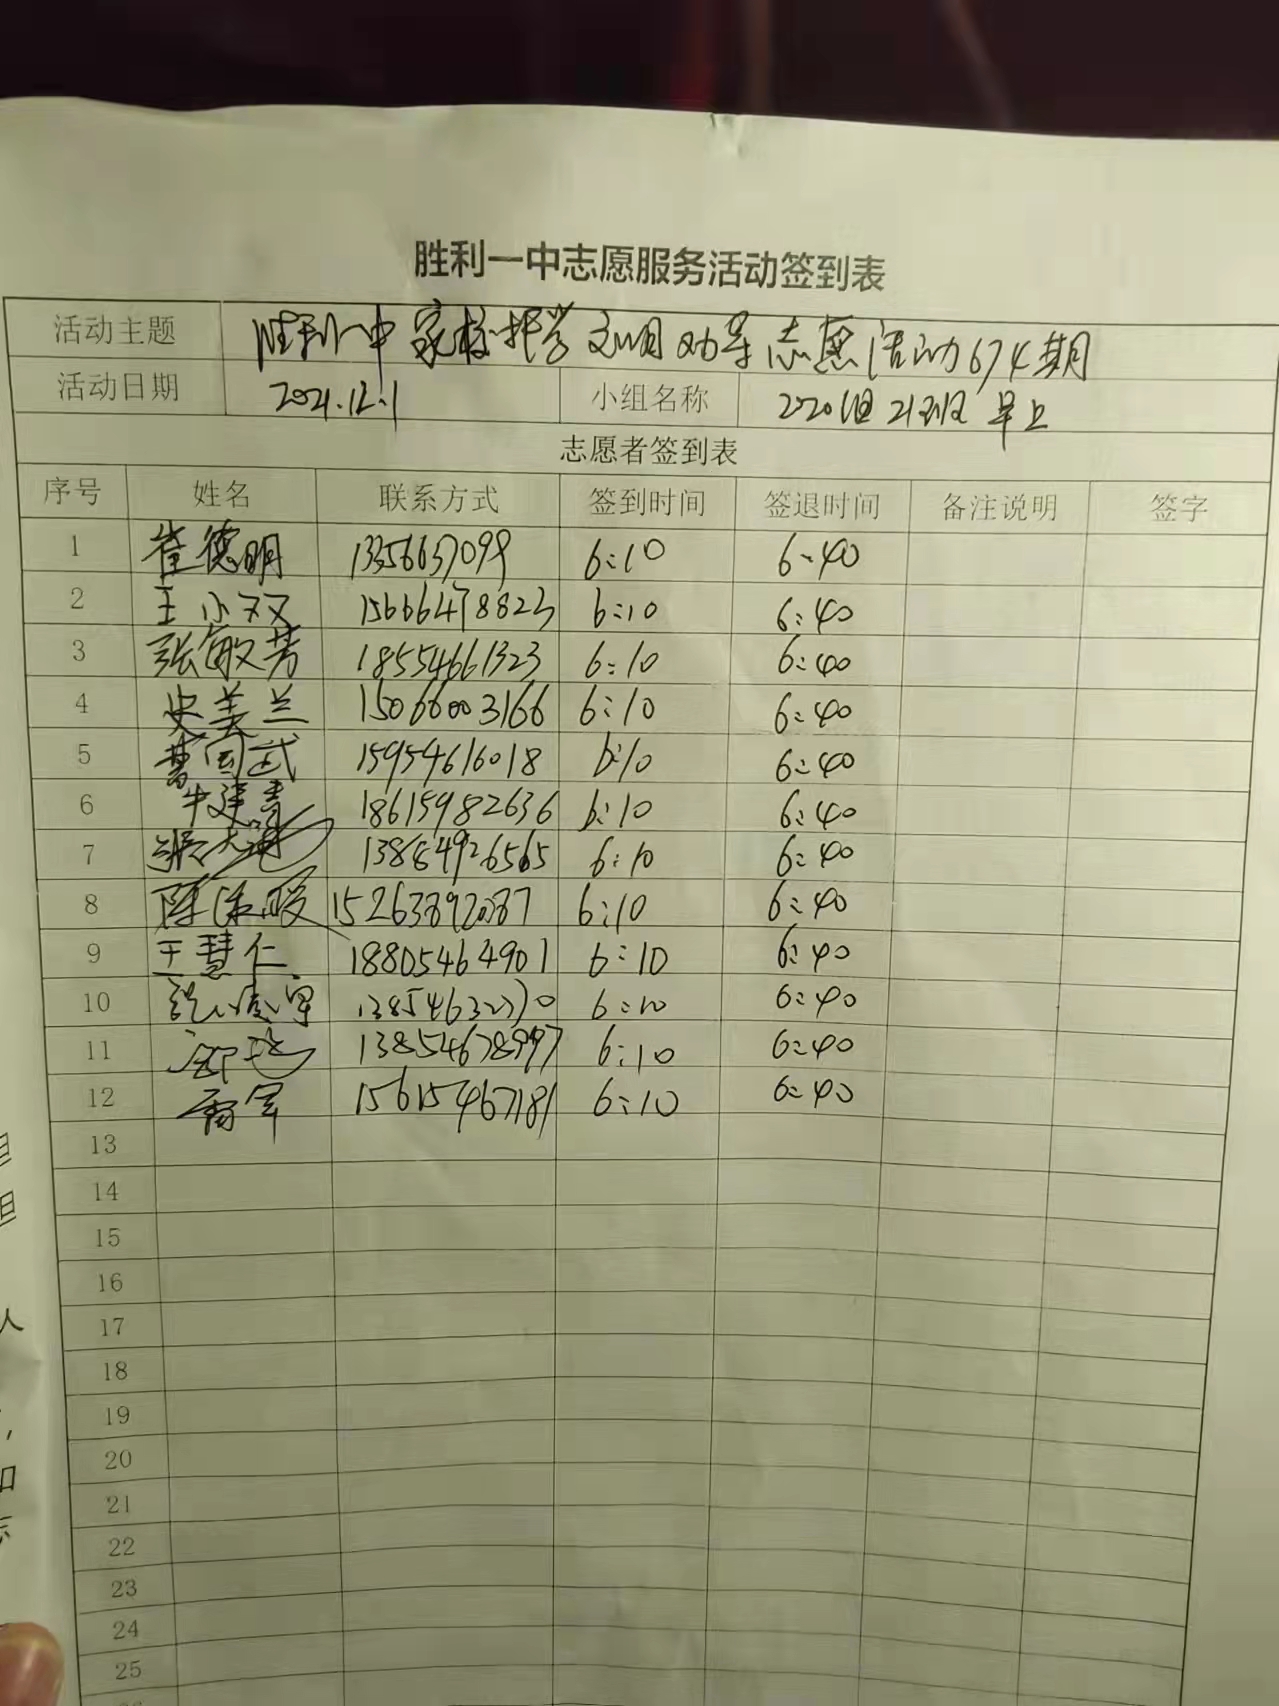 胜利一中志愿服务活动签到表
活动主题 胜利一中家校护学文明劝导志愿活动674期
活动日期 2021.12.1 小组名称 2020级21班 早上
志愿者签到表
序号 姓名 联系方式 签到时间 签退时间 备注说明 签字
1 崔德明 13356637099 6:10 6:40
2 王小双 15666478823 6:10 6:40
3 张敏芳 18554661323 6:10 6:40
4 史美兰 15066003166 6:10 6:40
5 曹国武 15954616018 6:10 6:40
6 牛建青 18615982636 6:10 6:40
7 13864926565 6:10 6:40
8 陈 15263892087 6:10 6:40
9 王慧仁 18805464901 6:10 6:40
10 6:10 6:40
11 13854678997 6:10 6:40
12 雷军 15615467181 6:10 6:40
13
14
15
16
17
18
19
20
21
22
23
24
25